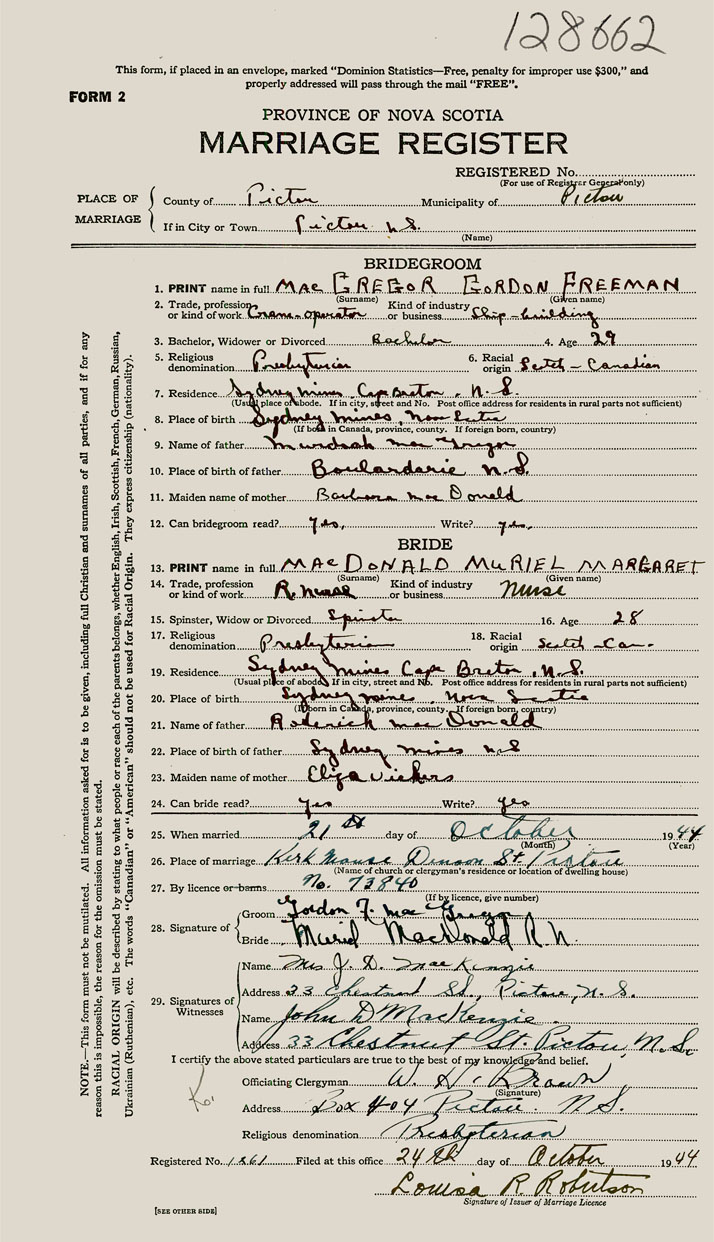 128662
This form, if placed in an envelope, marked "Dominion Statistics—Free, penalty for improper use $300," and
properly addressed will pass through the mail "FREE".
FORM 2
PROVINCE OF NOVA SCOTIA
MARRIAGE REGISTER
REGISTERED No.
(For use of Registrar General only)
PLACE OF MARRIAGE
County of Pictou Municipality of Pictou
If in City or Town Pictou N.S.
(Name)
BRIDEGROOM
1. PRINT name in full MacGREGOR GORDON FREEMAN
(Surname) (Given name)
2. Trade, profession or kind of work Crane-operator Kind of industry or business Ship-building
3. Bachelor, Widower or Divorced Bachelor 4. Age 29
5. Religious denomination Presbyterian 6. Racial origin Scotch-Canadian
7. Residence Sydney Mines, Cape Breton, N.S
(Usual place of abode. If in city, street and No. Post office address for residents in rural parts not sufficient)
8. Place of birth Sydney Mines, Nova Scotia
(If born in Canada, province, county. If foreign born, country)
9. Name of father Murdoch MacGregor
10. Place of birth of father Boulardarie N.S.
11. Maiden name of mother Barbara MacDonald
12. Can bridegroom read? Yes, Write? yes,
BRIDE
13. PRINT name in full MACDONALD MURIEL MARGARET
(Surname) (Given name)
14. Trade, profession or kind of work R. Nurse Kind of industry or business Nurse
15. Spinster, Widow or Divorced Spinster 16. Age 28
17. Religious denomination Presbyterian 18. Racial origin Scotch-Can.
19. Residence Sydney Mines Cape Breton, N.S
(Usual place of abode. If in city, street and No. Post office address for residents in rural parts not sufficient)
20. Place of birth Sydney Mines, Nova Scotia
(If born in Canada, province, county. If foreign born, country)
21. Name of father Roderick MacDonald
22. Place of birth of father Sydney Mines N.S
23. Maiden name of mother Eliza Vickers
24. Can bride read? Yes Write? Yes
25. When married 21st day of October 1944
(Month) (Year)
26. Place of marriage Kirk Manse Denoon St Pictou
(Name of church or clergyman's residence or location of dwelling house)
27. By licence or banns No. 73840
(If by licence, give number)
28. Signature of
Groom Gordon F. MacGregor
Bride Muriel MacDonald R.N.
29. Signatures of Witnesses
Name Mrs J. D. MacKenzie
Address 33 Chestnut St., Pictou, N.S.
Name John D MacKenzie
Address 33 Chestnut St. Pictou, N.S.
I certify the above stated particulars are true to the best of my knowledge and belief.
Officiating Clergyman W. H. Brown
(Signature)
Address Box 404 Pictou. N.S.
Religious denomination Presbyterian
Registered No. 1861 Filed at this office 24th day of October 1944
Louisa R. Robertson
Signature of Issuer of Marriage Licence
[SEE OTHER SIDE]
NOTE.—This form must not be mutilated. All information asked for is to be given, including full Christian and surnames of all parties, and if for any
reason this is impossible, the reason for the omission must be stated.
RACIAL ORIGIN will be described by stating to what people or race each of the parents belongs, whether English, Irish, Scottish, French, German, Russian,
Ukrainian (Ruthenian), etc. The words "Canadian" or "American" should not be used for Racial Origin. They express citizenship (nationality).